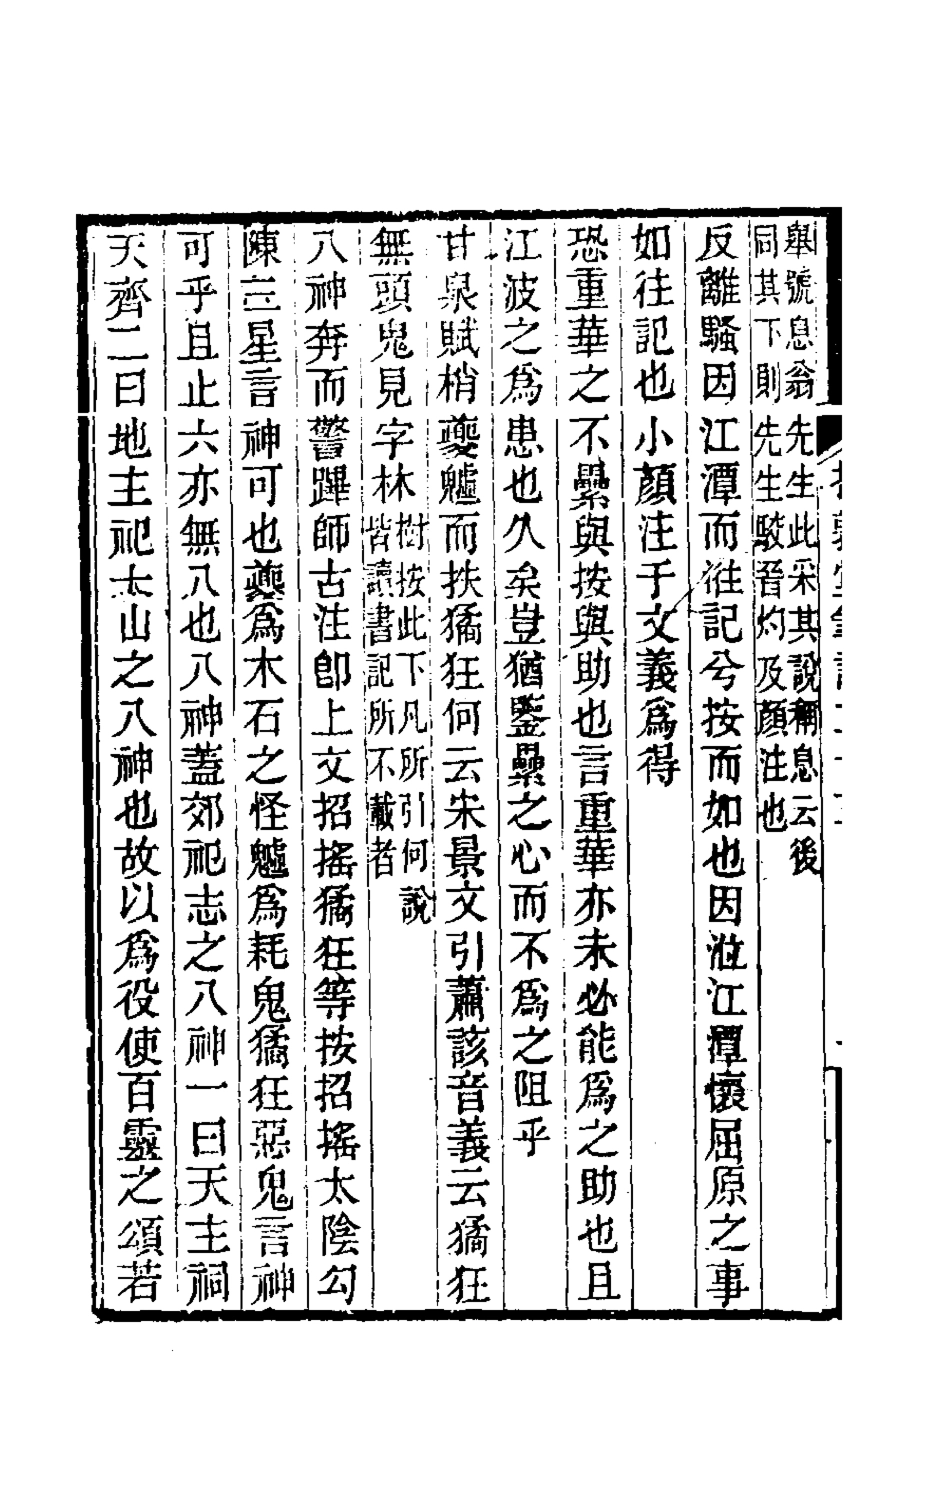 舉號息翁先生此采其說稱息云後
同其下則先生駁晉灼及顏注也
反離騷因江潭而㳌記兮按而如也因㳌江潭懷屈原之事
如往記也小顏注于文義爲得
恐重華之不纍與按與助也言重華亦未必能爲之助也且
江波之爲患也久矣豈猶鑒纍之心而不爲之阻乎
甘泉賦梢夔魖而抶獝狂何云宋景文引蕭該音義云獝狂
無頭鬼見字林樹按此下凡所引何說
皆讀書記所不載者
八神奔而警蹕師古注卽上文招搖獝狂等按招搖太陰勾
陳三星言神可也夔爲木石之怪魖爲耗鬼獝狂惡鬼言神
可乎且止六亦無八也八神蓋郊祀志之八神一曰天主祠
天齊二曰地主祀太山之八神也故以爲役使百靈之頌若